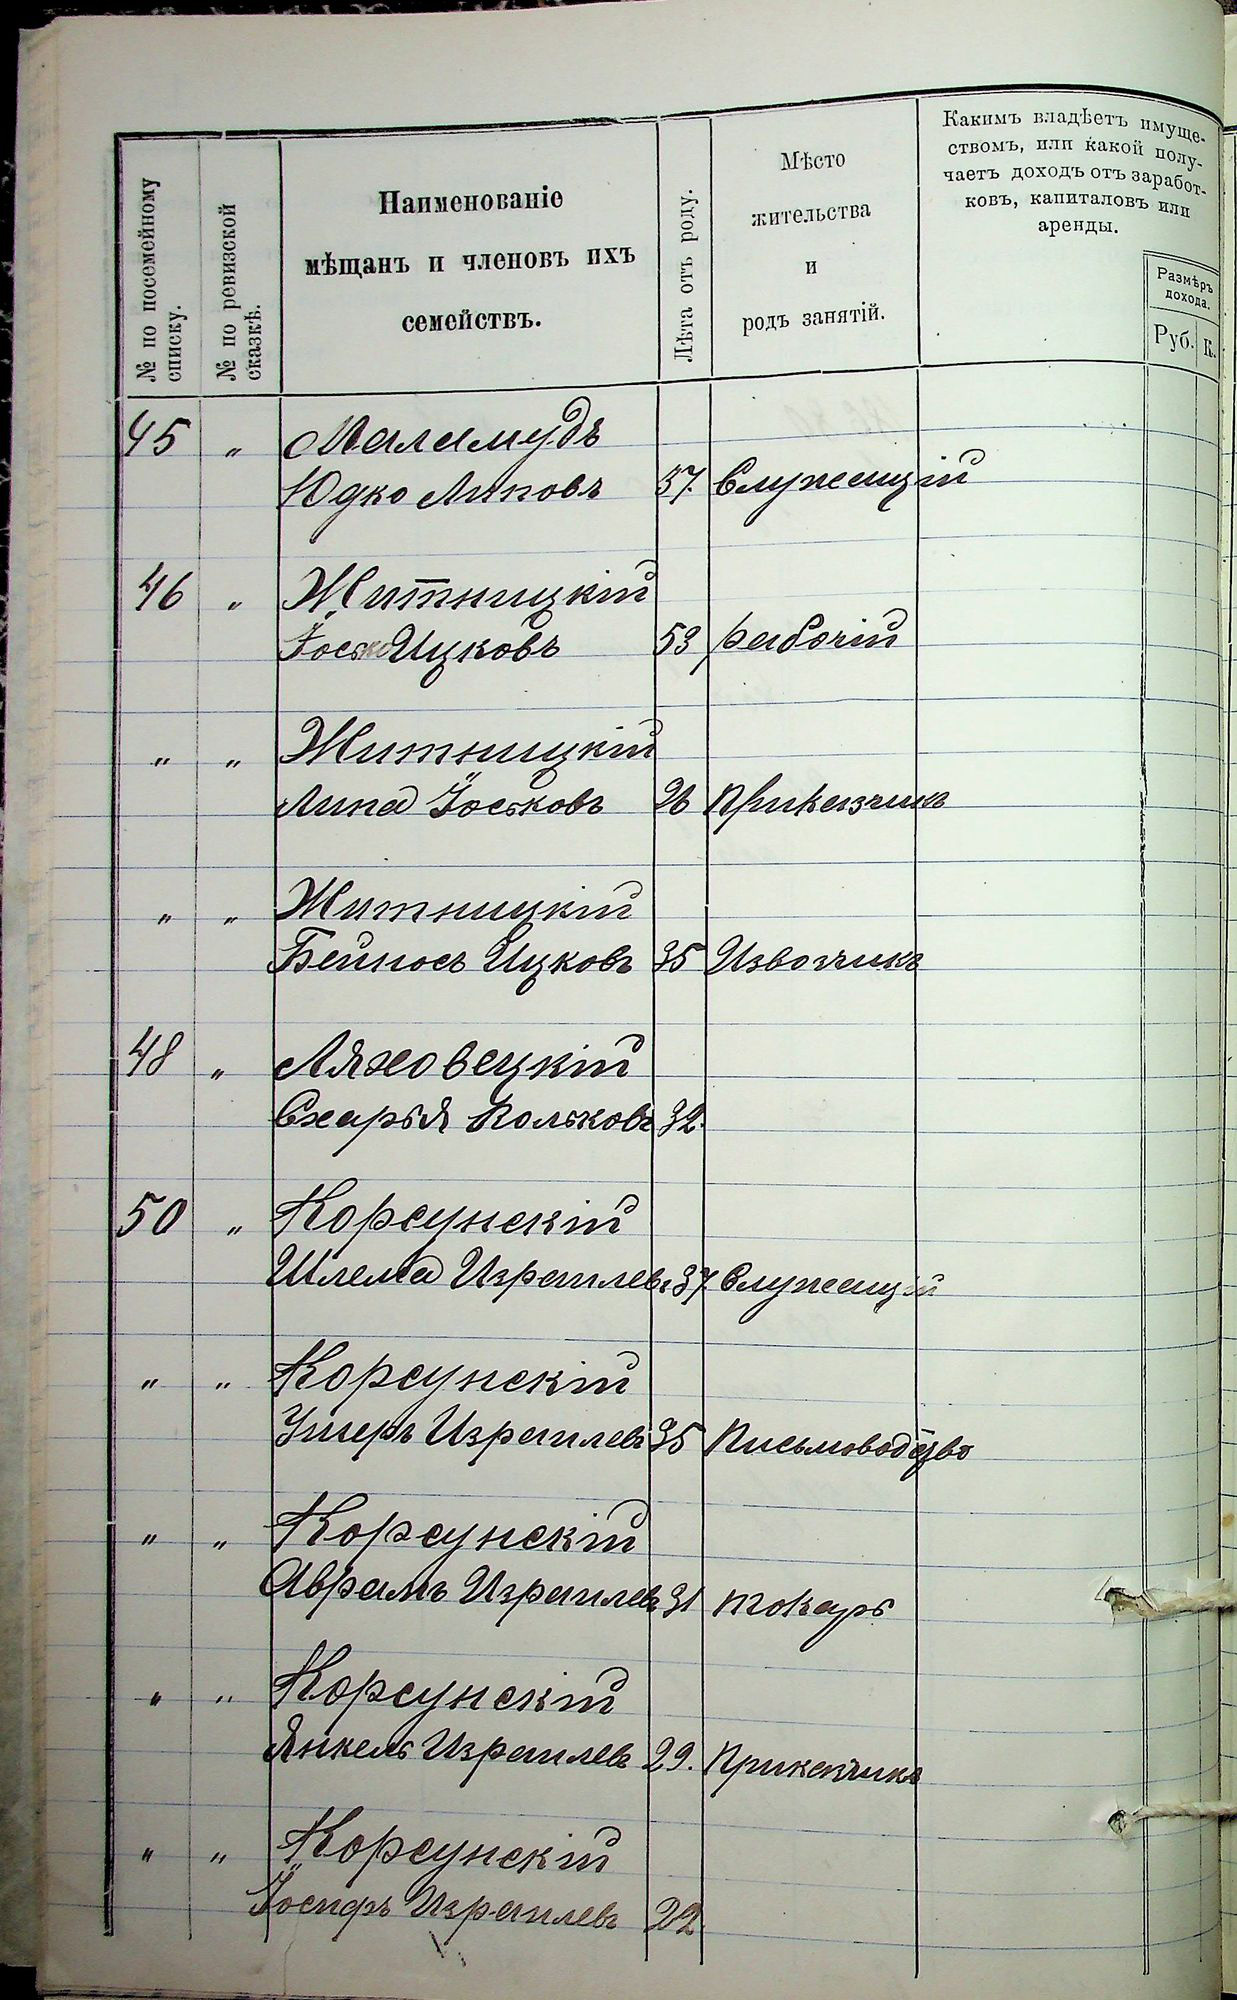 № по посемейному списку.
№ по ревизской сказкѣ.
Наименованіе
мѣщанъ и членовъ ихъ
семействъ.
Лѣта отъ роду.
Мѣсто
жительства
и
родъ занятій.
Какимъ владѣетъ имуще-
ствомъ, или какой полу-
чаетъ доходъ отъ заработ-
ковъ, капиталовъ или
аренды.
Размѣръ
дохода.
Руб. К.
45 „ Маламудъ
Юдко Липовъ 37. Служащій
46 „ Житницкій
Іосько Ицковъ 53 рабочій
„ „ Житницкій
Липа Іоськовъ 26 Приказчикъ
„ „ Житницкій
Бейносъ Ицковъ 35 Извозчикъ
48 „ Ляховецкій
Схарья Вольковъ 32.
50 „ Корсунскій
Шлема Израилевъ 37. Служащій
„ „ Корсунскій
Ушеръ Израилевъ 35 Письмоводство
„ „ Корсунскій
Аврамъ Израилевъ 31 токарь
„ „ Корсунскій
Янкель Израилевъ 29. Приказчикъ
„ „ Корсунскій
Іосифъ Израилевъ 22.